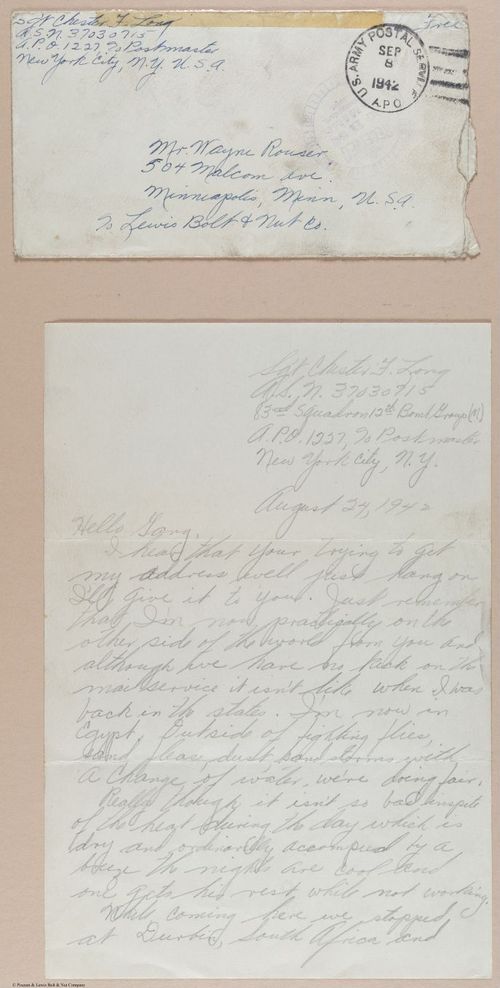 Sgt Chester F. Long
A.S.N. 37030715
A.P.O. 1227, % Postmaster
New York City, N.Y. U.S.A.
Free
U.S. ARMY POSTAL SERVICE
SEP
8
1942
APO
Mr. Wayne Rouser
504 Malcom ave.
Minneapolis, Minn, U.S.A.
% Lewis Bolt & Nut Co.
Sgt Chester F. Long
A.S.N. 37030715
83rd Squadron 12th Bomb Group (M)
A.P.O. 1227, % Postmaster
New York City, N.Y.
August 24, 1942
Hello Gang,
I hear that your trying to get
my address, well just hang on
I'll give it to you. Just remember
that I'm now practically on the
other side of the world from you and
although we have no kick on the
mail service it isn't like when I was
back in the states. I'm now in
Egypt. Outside of fighting flies,
sand fleas, dust sand storms with
a change of water, we're doing fair.
Really though, it isn't so bad inspite
of the heat during the day which is
dry and ordinarily accompied by a
breeze the nights are cool and
one gets his rest while not working.
While coming here we stopped
at Durbin, South Africa and
© Poucan & Lewis Bolt & Nut Company